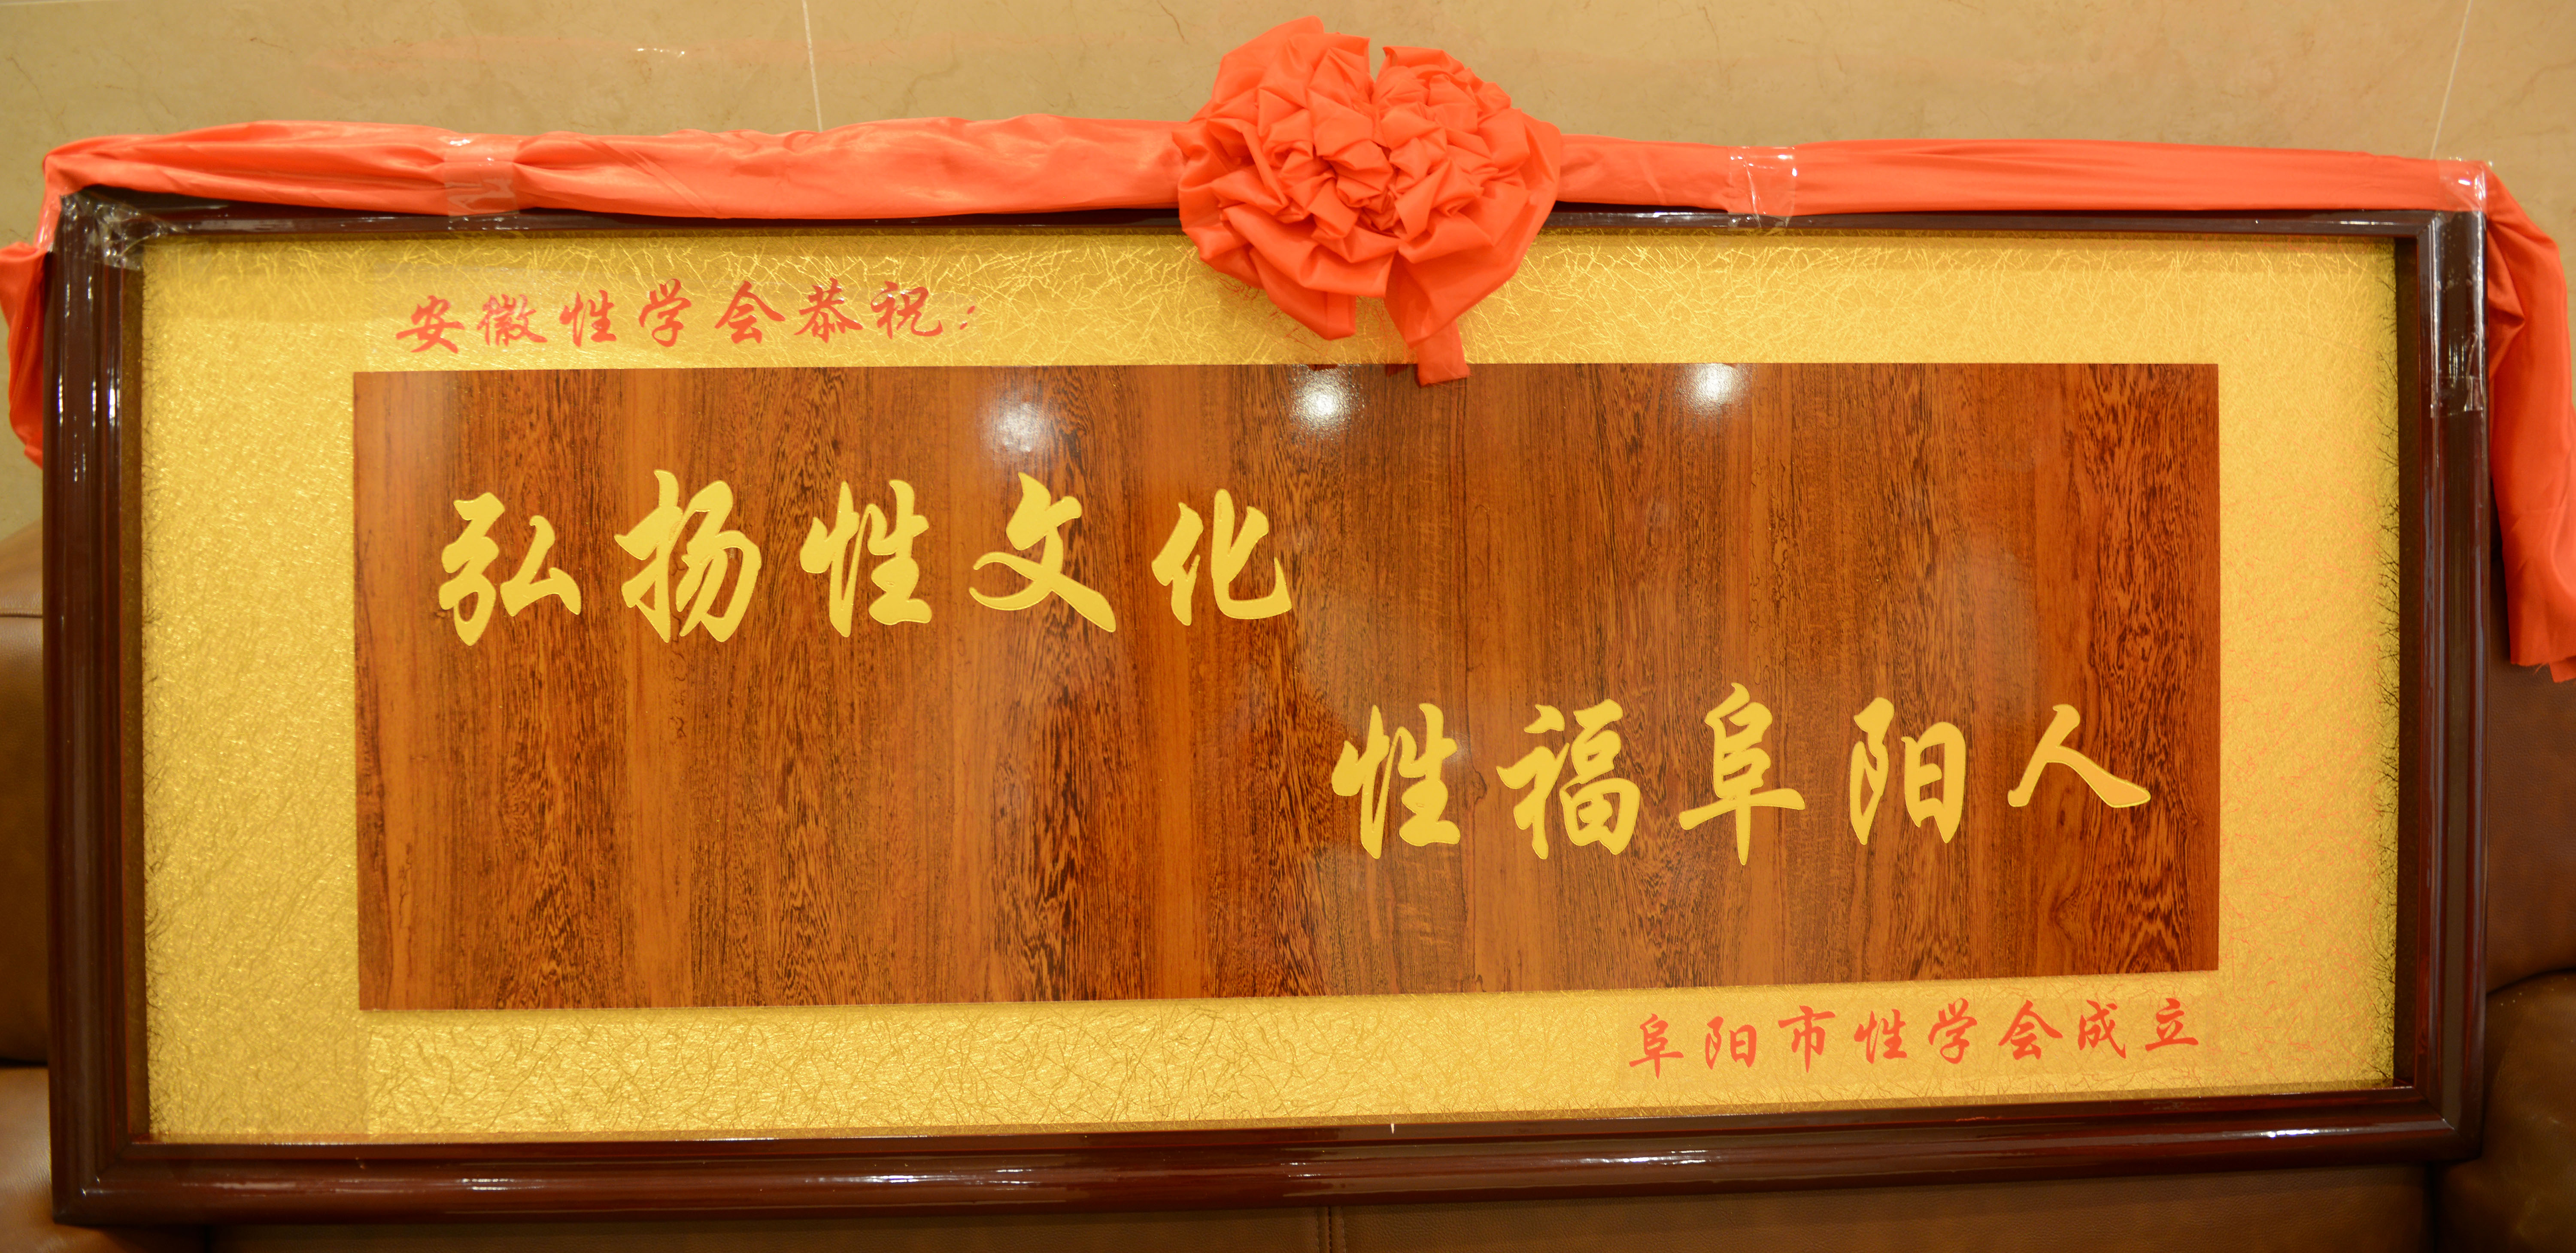 安徽性学会恭祝：
弘扬性文化
性福阜阳人
阜阳市性学会成立